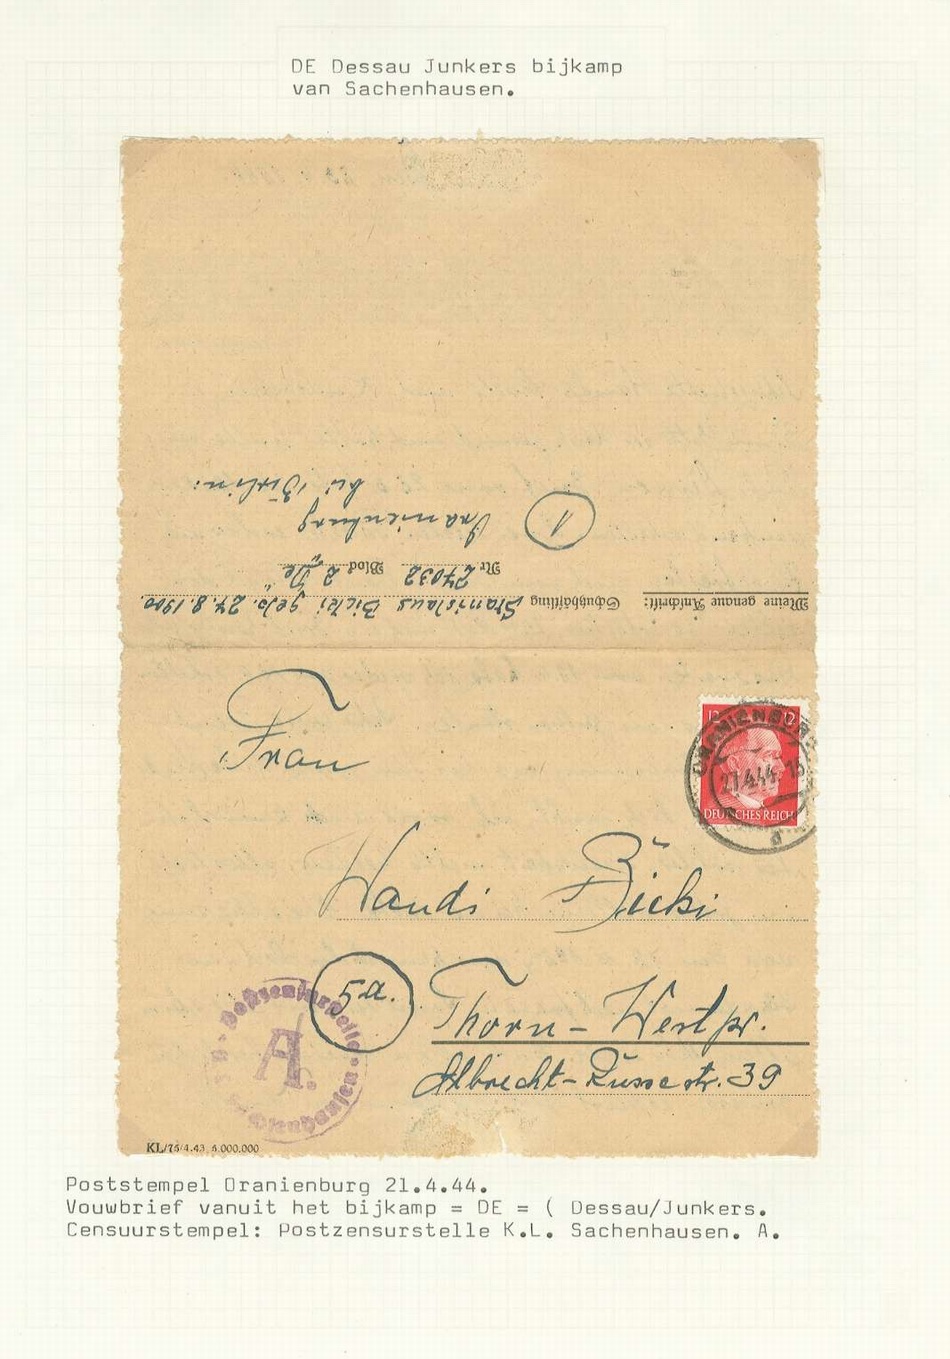 DE Dessau Junkers bijkamp
van Sachenhausen.
Meine genaue Anschrift:
Schutzhäftling Stanislaus Bicki geb. 27.8.1900
Nr 27032 Block 2 "De"
Oranienburg
bei Berlin:
1
Frau
Wandi Bicki
5a.
Thorn - Westpr.
Albrecht-Düssestr. 39
12 12
DEUTSCHES REICH
ORANIENBURG
21.4.44.-15
a
Postzensurstelle
A
Sachenhausen
KL/75/4.43 5.000.000
Poststempel Oranienburg 21.4.44.
Vouwbrief vanuit het bijkamp = DE = ( Dessau/Junkers.
Censuurstempel: Postzensurstelle K.L. Sachenhausen. A.